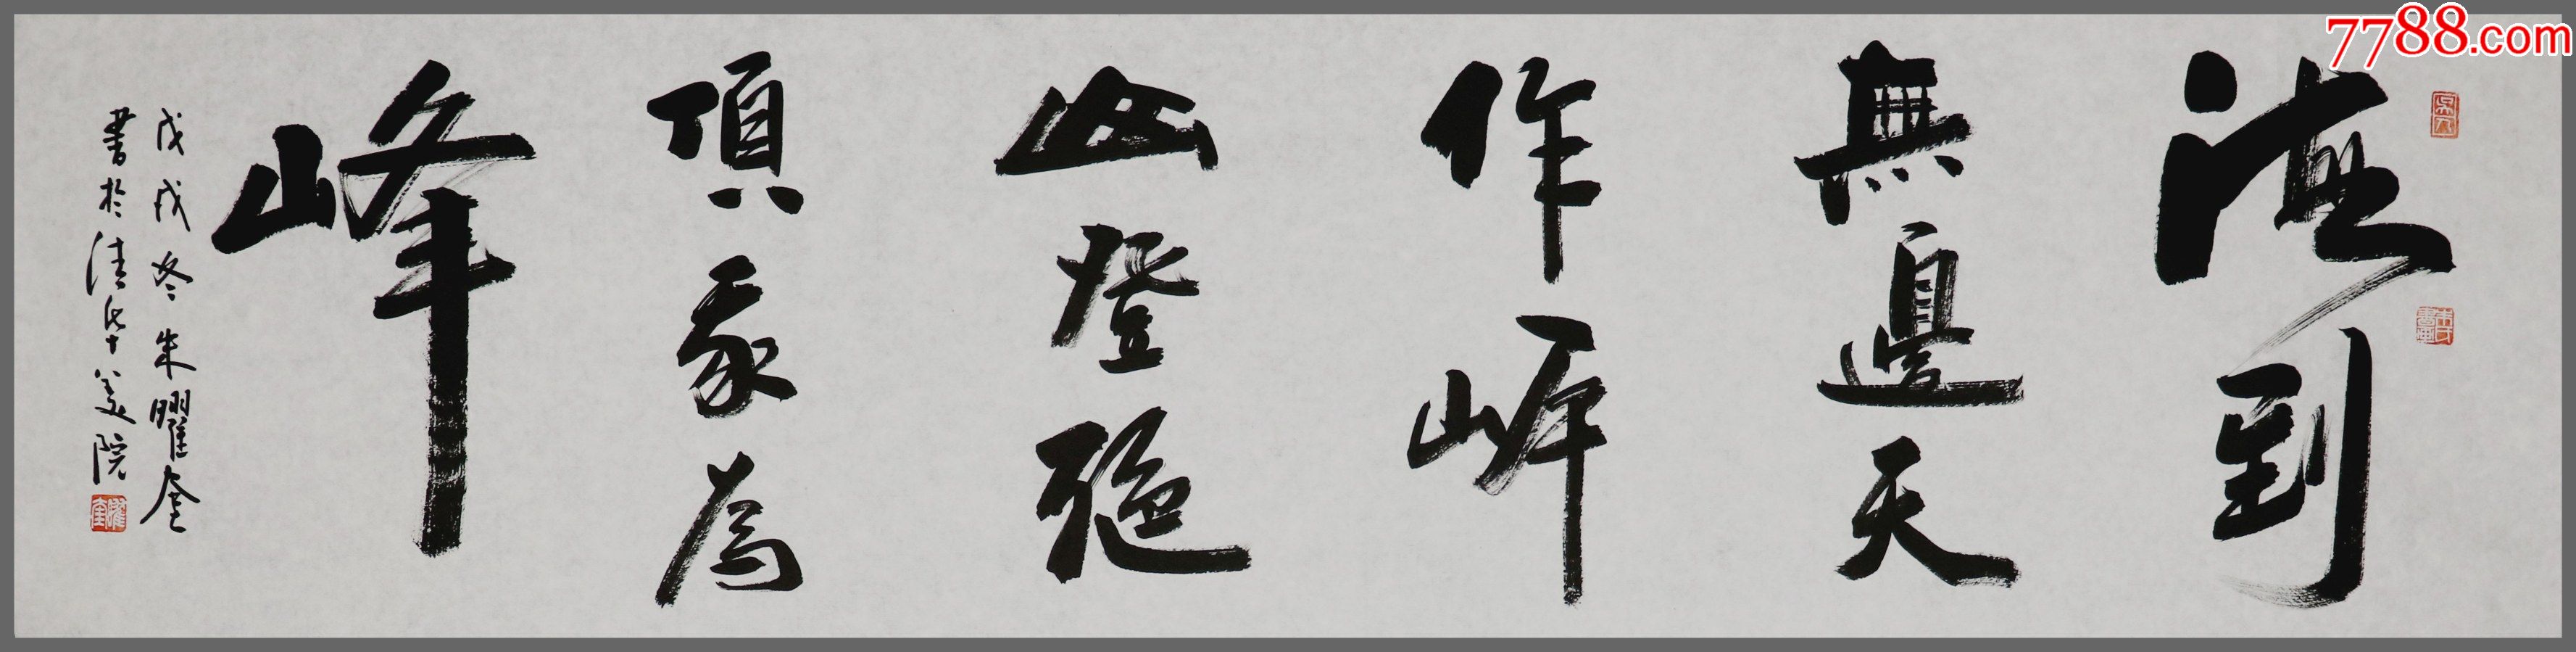 海到
無邊天
作岸
山登絕
頂我為
峰
戊戌冬朱曜奎
書於清华美院
7788.com